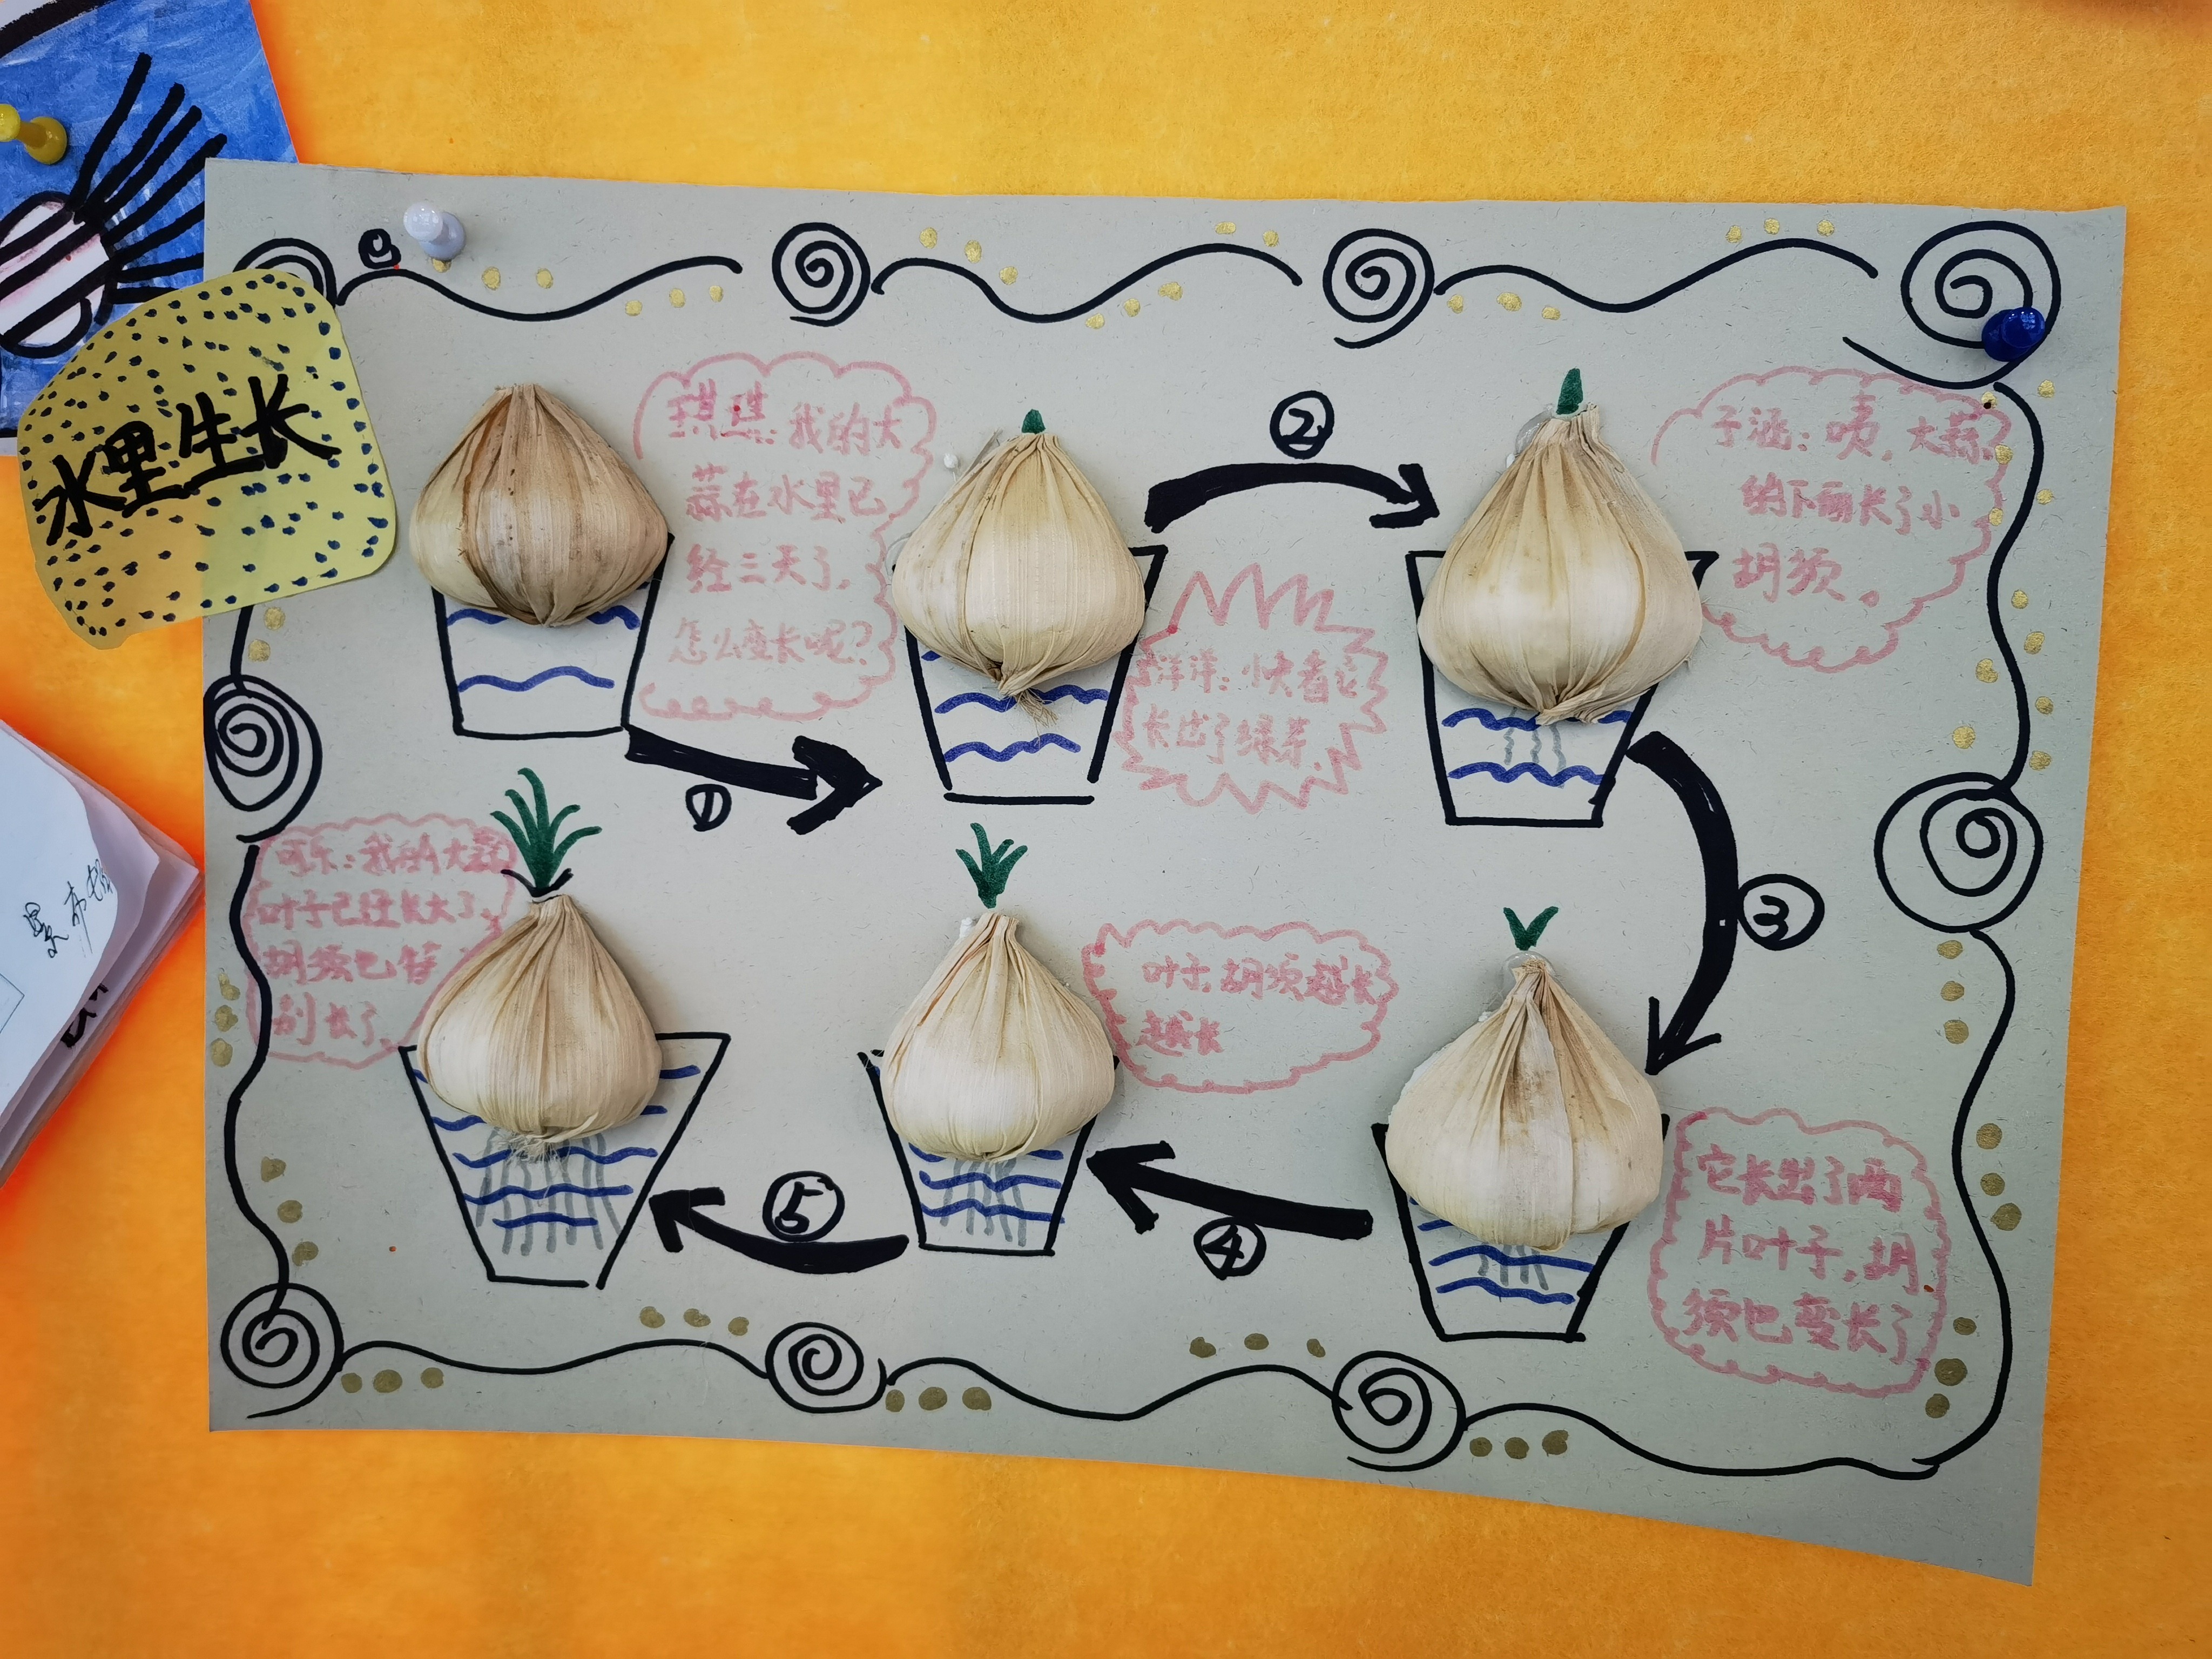 水里生长
琪琪:我的大
蒜在水里已
经三天了,
怎么变长呢?
①
洋洋:快看它
长出了绿芽.
②
子涵:咦,大蒜
的下面长了小
胡须。
③
它长出了两
片叶子,胡
须也变长了
④
叶子,胡须越长
越长
⑤
可乐:我的大蒜
叶子已经长大了,
胡须也特
别长了.